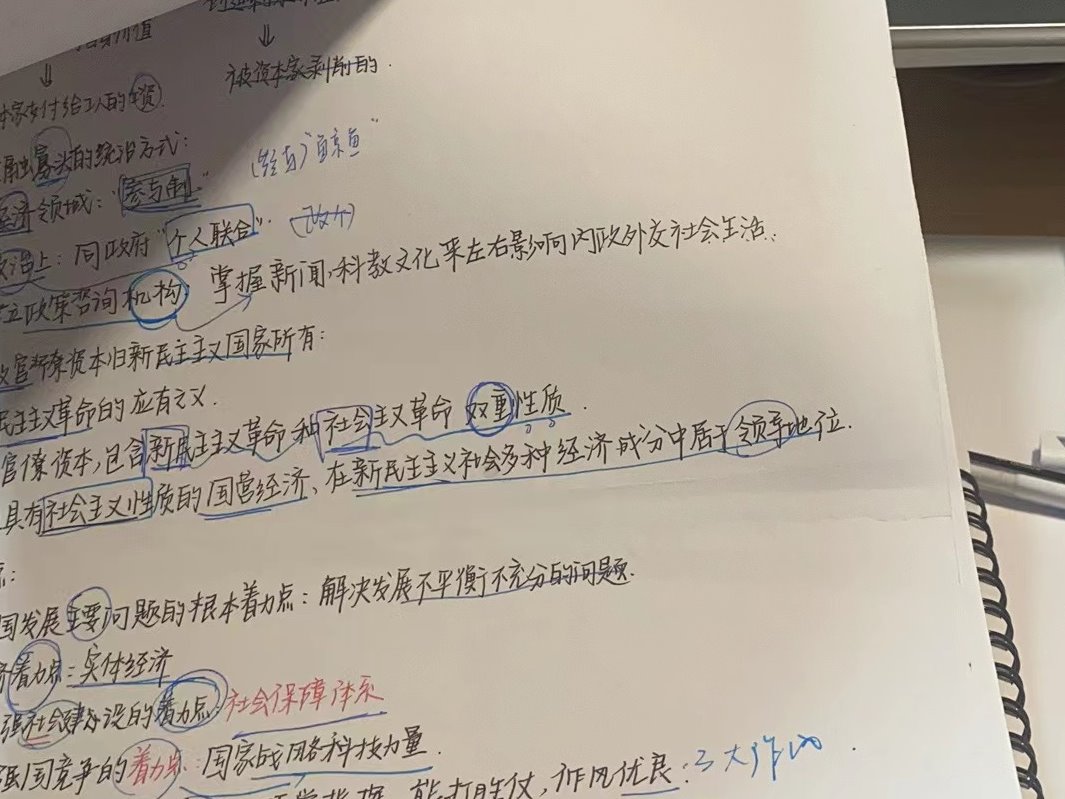 ⇓ ⇓
家支付给工人的工资. 被资本家剥削的.
融寡头的统治方式:
经济领域:"参与制" (经与)"鲸鱼"
政治上: 同政府"个人联合".
立政策咨询机构. 掌握新闻、科教文化来左右影响内政外交社会生活.
官僚资本归新民主主义国家所有:
民主主义革命的应有之义.
官僚资本, 包含新民主主义革命和社会主义革命双重性质.
具有社会主义性质的国营经济, 在新民主主义社会多种经济成分中居于领导地位.
点:
国发展主要问题的根本着力点: 解决发展不平衡不充分的问题.
着力点: 实体经济
强社会建设的着力点: 社会保障体系
强国竞争的着力点: 国家战略科技力量.
能打胜仗, 作风优良: 三大